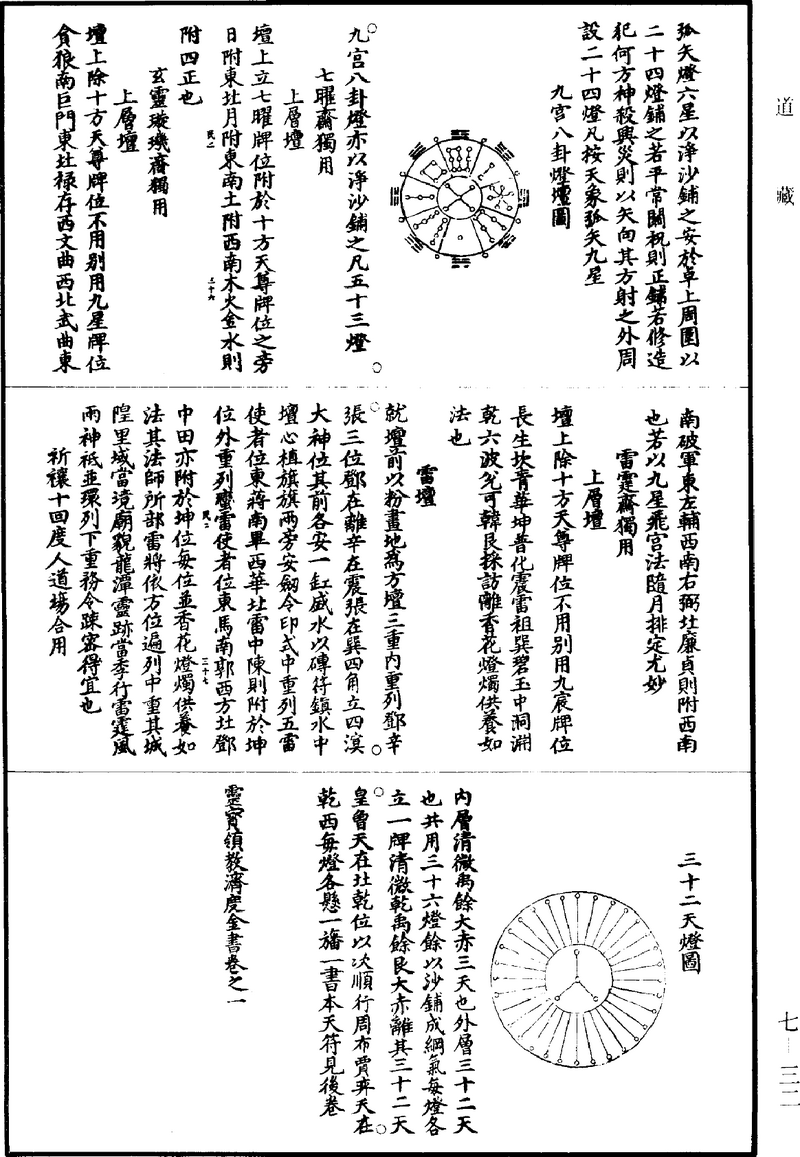 道藏
弧矢燈六星以淨沙鋪之安於卓上周圍以
二十四燈鋪之若平常關祝則正鋪若修造
犯何方神殺興災則以矢向其方射之外周
設二十四燈凡按天象弧矢九星
九宮八卦燈壇圖
九宮八卦燈亦以淨沙鋪之凡五十三燈
七曜齋獨用
上層壇
壇上立七曜牌位附於十方天尊牌位之旁
日附東北月附東南土附西南木火金水則
附四正也
玄靈璇璣齋獨用
上層壇
壇上除十方天尊牌位不用別用九星牌位
貪狼南巨門東北祿存西文曲西北武曲東
南破軍東左輔西南右弼北廉貞則附西南
也若以九星飛宮法隨月排定尤妙
雷霆齋獨用
上層壇
壇上除十方天尊牌位不用別用九宸牌位
長生坎青華坤普化震雷祖巽碧玉中洞淵
乾六波兌可韓艮採訪離香花燈燭供養如
法也
雷壇
就壇前以粉畫地為方壇三重內重列鄧辛
張三位鄧在離辛在震張在巽四角立四溟
大神位其前各安一缸盛水以磚符鎮水中
壇心植旗旗兩旁安劒令印式中重列五雷
使者位東蔣南畢西華北雷中陳則附於坤
位外重列蠻雷使者位東馬南郭西方北鄧
中田亦附於坤位每位並香花燈燭供養如
法其法師所部雷將依方位遍列中重其城
隍里域當境廟貌龍潭靈跡當季行雷霆風
雨神祇並環列下重務令疎密得宜也
祈禳十回度人道場合用
三十二天燈圖
內層清微禹餘大赤三天也外層三十二天
也共用三十六燈餘以沙鋪成綱氣每燈各
立一牌清微乾禹餘艮大赤離其三十二天
皇曾天在北乾位以次順行周布賈弈天在
乾西每燈各懸一旛一書本天符見後卷
靈寶領教濟度金書卷之一
七—三二